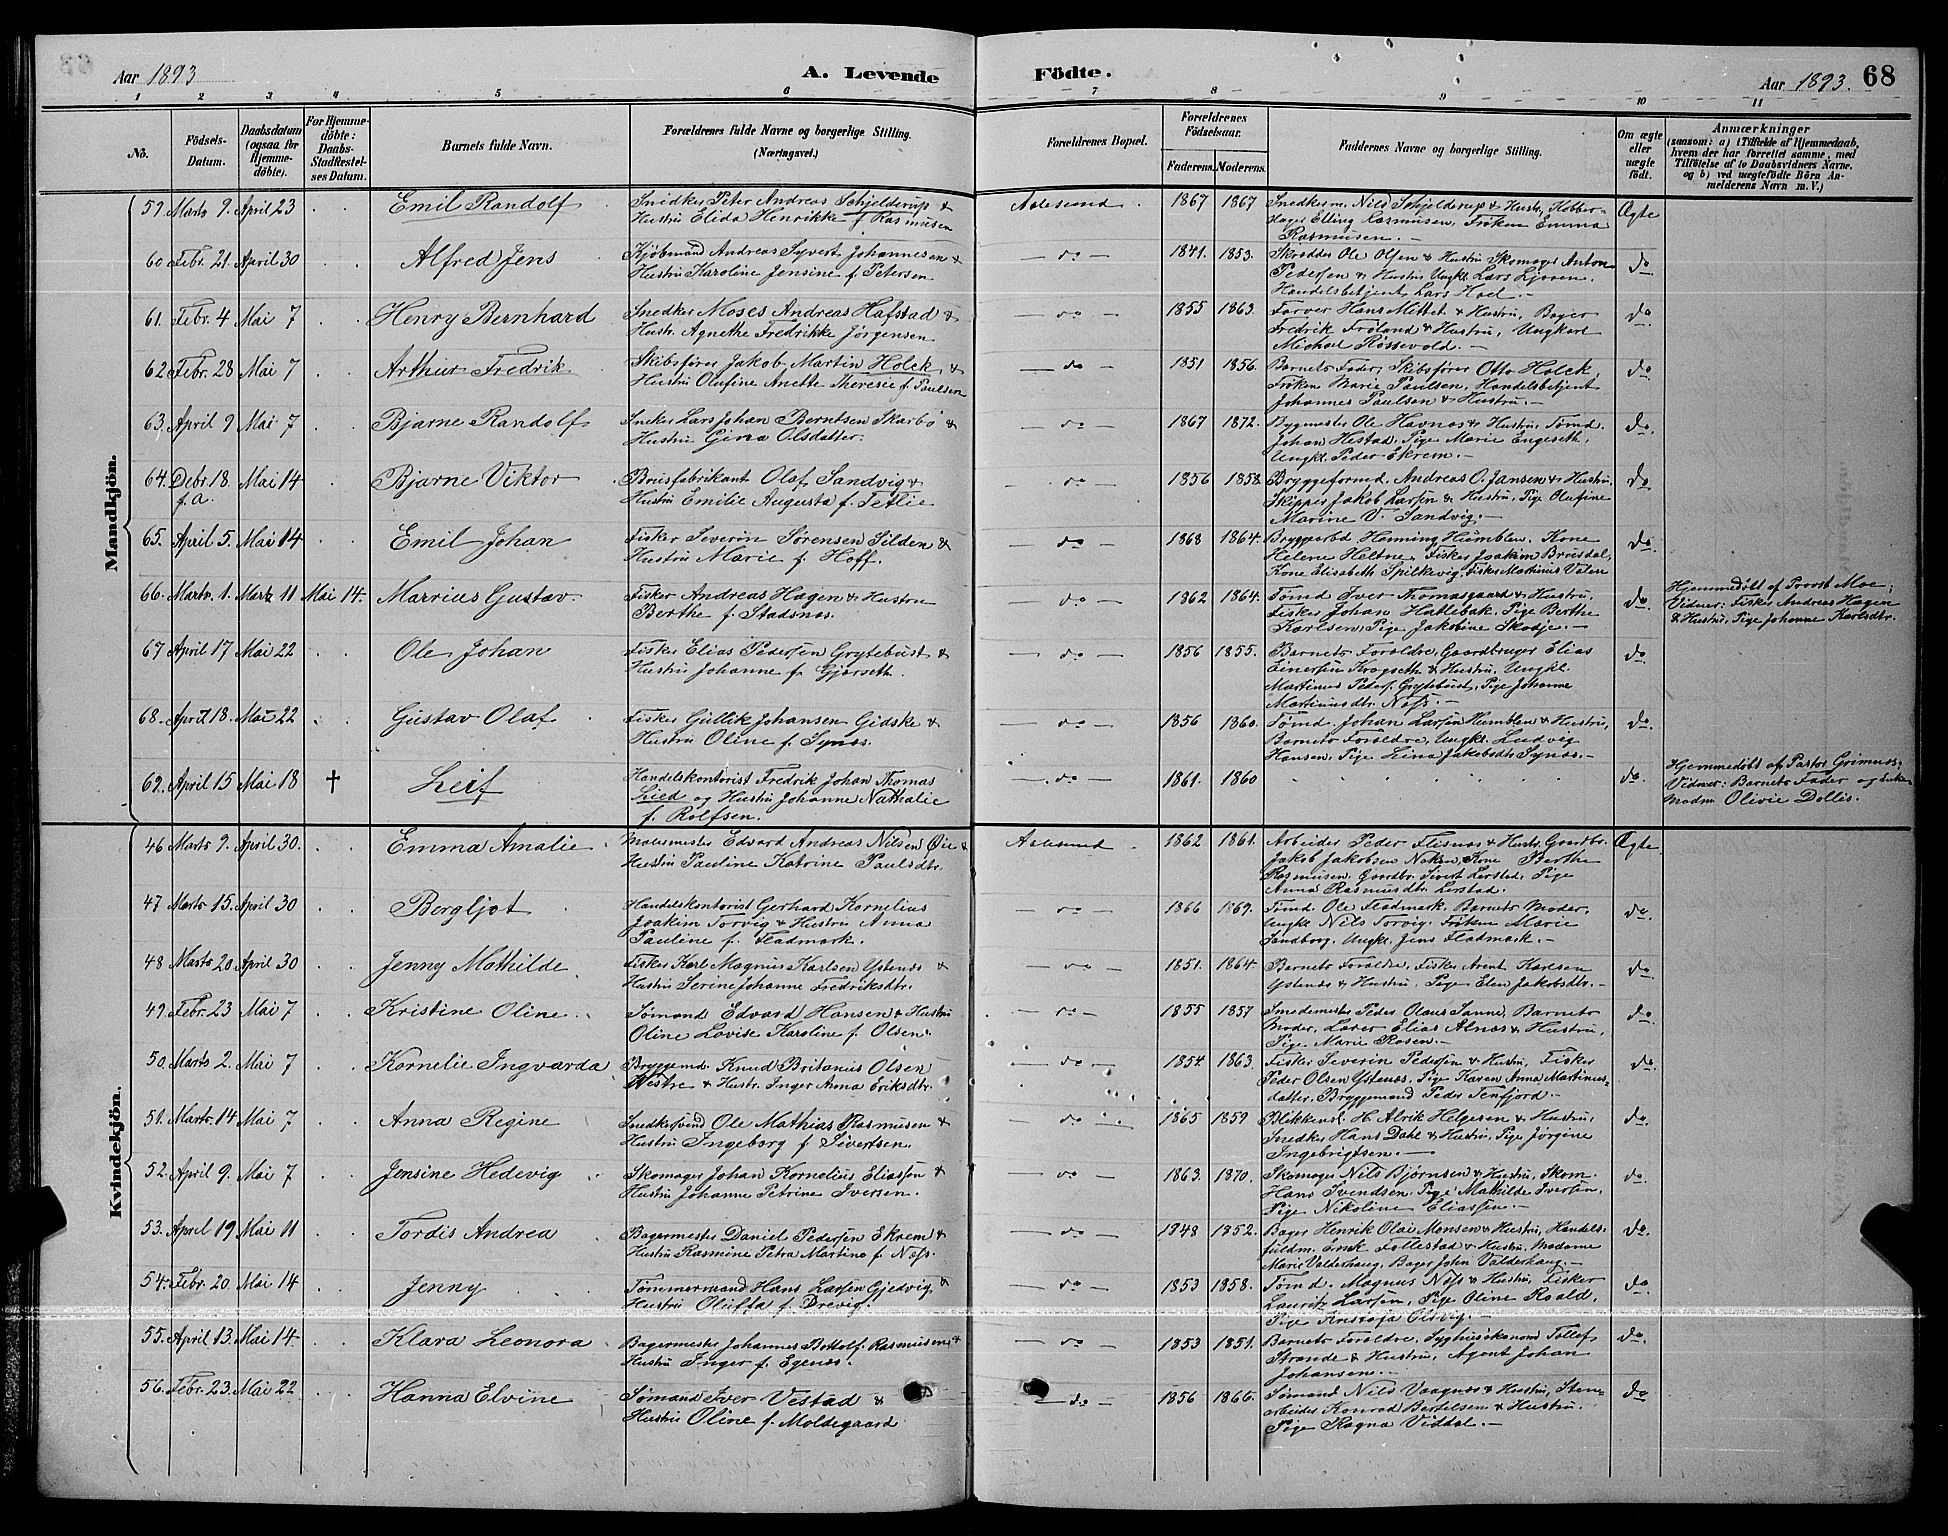 Aar 1893
A. Levende Födte.
Aar 1893. 68
1 2 3 4 5 6 7 8 9 10 11
No.
Födsels-Datum.
Daabsdatum (ogsaa for Hjemme-döbte).
For Hjemme-döbte: Daabs-Stadfæstel-ses Datum.
Barnets fulde Navn.
Forældrenes fulde Navne og borgerlige Stilling. (Næringsvei.)
Forældrenes Bopæl.
Forældrenes Födselsaar.
Faderens. Moderens.
Faddernes Navne og borgerlige Stilling.
Om ægte eller uægte födt.
Anmærkninger
(saasom: a) i Tilfælde af Hjemmedaab, hvem der har forrettet samme, med Tilföielse af to Daabsvidners Navne. og b) ved uægtefödte Börn An-melderens Navn m. V.)
Mandkjön.
59. Marts 9. April 23 Emil Randolf
Snidker Peter Andreas Schjelderup &
Hustru Elida Henrikke f Rasmusen
Aalesund 1867 1867
Snedkerm. Nils Schjelderup & Hustr, Hobber-
dager Elling Rasmussen, Frøken Emma
Rasmusen.—
Ægte
60 Febr. 21 April 30 Alfred Jens
Kjøbmand Andreas Syvert Johannesen &
Hustru Karoline Jensine f. Petersen
— do — 1841. 1853.
Skrædder Ole Olsen & Hustru Skomager Anton
Pedersen & Hustru Ungkl. Lars Ljøven.
Handelsbetjent Lars Hoel.—
do
61. Febr. 4 Mai 7 Henry Bernhard
Snedker Moses Andreas Hafstad &
Hustr. Agnethe Fredrikke Jørgensen
— do — 1855 1863.
Farver Hans Mittet & Hustru, Bager
Fredrik Frøland & Hustru, Ungkarl
Michael Røssevold.—
do
62 Febr. 28 Mai 7 Arthur Fredrik
Skibsfører Jakob Martin Holck &
Hustru Olufine Anette Theresie f. Paulsen
— do — 1851 1856.
Barnets Fader, Skibsfører Otto Holck,
Frøken Marie Paulsen, Handelsbetjent
Johannes Paulsen & Hustru.—
do
63. April 9 Mai 7 Bjarne Randolf
Sneker Lars Johan Berntsen Skarbø &
Hustru Gina Olsdatter.
— do — 1867 1872.
Bygmester Ole Havnes & Hustru, Tømd.
Johan Hestad, Pige Marie Engeseth,
Ungkl. Peder Ekrem.—
do.
64. Debr. 18 f.a. Mai 14 Bjarne Viktor
Brusfabrikant Olaf Sandvig &
Hustru Emilie Augusta f. Tetlie
— do — 1856 1858.
Bryggeformd. Andreas O. Jansen & Hustru,
Skipper Jakob Larsen & Hustru, Pige Olufine
Marine V. Sandvig.—
do
65. April 5. Mai 14 Emil Johan
Fisker Severin Sørensen Silden &
Hustru Marie f. Hoff.
— do — 1868 1864.
Bryggerbd Heming Humblen, Kone
Helene Heltne, Fisker Joakim Brusdal,
Kone Elisabeth Spilkevig, Fisker Martinus Valen
do
66. Marts. 1. Marts 11 Mai 14. Marrius Gustav
Fisker Andreas Hagen & Hustru
Berthe f. Stadsnæs.
— do — 1862 1864.
Tømd Iver Thomasgaard & Hustru.
Fisker Johan Hatlebak. Pige Berthe
Karlsen, Pige Jakobine Skodje.—
do
Hjemmedøbt af Provst Moe;
Vidner: Fisker Andreas Hagen
& Hustru, Pige Johanne Karlsdtr.
67 April 17 Mai 22 Ole Johan
Fisker Elias Pedersen Grytebust &
Hustru Johanne f. Gjørseth.
— do — 1856 1855.
Barnets Forældre, Gaardbruger Elias
Einersen Krogseth & Hustru, Ungkl
Martinus Peders. Grytebust, Pige Johanne
Martinusdtr. Næss.—
do
68. April 18. Mai 22 Gustav Olaf
Fisker Gullik Johansen Gidske &
Hustru Oline f. Synæs.
— do — 1856 1860.
Tømd. Johan Larsen Humblen & Hustru,
Barnets Forældre, Ungkl. Ludvig
Hansen, Pige Lina Jakobsdtr Synæs.—
do.
69. April 15 Mai 18 † Leif
Handelskontorist Fredrik Johan Thomas
Lied og Hustru Johanne Nathalie
f. Rolfsen.
— do — 1861. 1860
do.
Hjemmedøbt af Pastor Grimnæs;
Vidner: Barnets Fader og Enke
Madm. Olivie Dollis.
Kvindekjön.
46 Marts 9. April 30. Emma Amalie
Malermester Edvard Andreas Nilsen Øie &
Hustru Pauline Katrine Paulsdtr.
Aalesund 1862 1861.
Arbeider Peder Flisnæs & Hustr. Gaardbr.
Jakob Jakobsen Nakken, Kone Berthe
Rasmusen. Gaardbr. Sivert Lerstad. Pige
Anna Rasmusdtr Lerstad.
Ægte.
47 Marts 15. April 30 Bergljot
Handelskontorist Gerhard Kornelius
Joakim Torvig & Hustru Anna
Pauline f. Fladmark.
— do — 1866 1869.
Tømd. Ole Fladmark. Barnets Moder,
Ungkl. Nils Torvig. Frøken Marie
Sandborg. Ungkl. Jens Fladmark.—
do
48 Marts 20 April 30 Jenny Mathilde
Fisker Karl Magnus Karlsen Ystenes &
Hustru Serine Johanne Fredriksdtr.
— do — 1851. 1864.
Barnets Forældre. Fisker Arent Karlsen
Ystenes & Hustru, Pige Elen Jakobsdtr.—
do.
49. Febr. 23 Mai 7 Kristine Oline
Sømand Edvard Hansen & Hustru
Oline Lovise Karoline f. Olsen.
— do — 1855 1857
Smedemester Peder Olaus Sanne, Barnets
Moder, Lærer Elias Alnæs & Hustru,
Pige Marie Rosen.—
do
50. Marts 2. Mai 7 Kornelie Ingvarda
Bryggemd. Knud Britanus Olsen
Westre & Hustr. Inger Anna Eriksdtr.
— do — 1854. 1863.
Fisker Severin Pedersen & Hustru, Fisker
Peder Olsen Ystenes. Pige Karen Anna Martinus-
datter. Bryggemand Peder Tenfjord.—
do.
51. Marts 14 Mai 7 Anna Regine
Snedkersvend Ole Mathias Rasmusen &
Hustru Ingeborg f Sivertsen.
— do — 1865 1859
Blikkensl. H. Alrik Helgesen & Hustru,
Snedker Hans Dahl & Hustru, Pige Jørgine
Ingebrigtsen.—
do.
52. April 9. Mai 7 Jensine Hedevig
Skomager Johan Kornelius Eliassen &
Hustru Johanne Petrine Iversen.
— do — 1863. 1870.
Skomager Nils Bjørnsen & Hustru, Skom.
Hans Svendsen, Pige Mathilde Iversen,
Pige Nikoline Eliassen.—
do.
53. April 19 Mai 11 Tordis Andrea
Bagermester Daniel Pedersen Ekrem &
Hustru Rasmine Petra Martine f. Næss.
— do — 1848 1852.
Bager Henrik Olai Monsen & Hustru, Handels-
fuldm. Enok Follestad & Hustru, Madame
Marie Valderhaug, Bager John Valderhaug.—
do.
54. Febr. 20 Mai 14 Jenny
Tømmermand Hans Larsen Gjedvig &
Hustru Olufta f. Drevig.
— do — 1853 1858.
Tømd. Magnus Næss & Hustru, Fisker
Lauritz Larsen, Pige Oline Roald,
Pige Anstafa Olsvig.—
do
55. April 13. Mai 14. Klara Leonora
Bagermester Johannes Bottolf Rasmusen &
Hustru Inger f. Egenæs.
— do — 1853 1851.
Barnets Forældre, Syghusøkonom Tollef
Strande & Hustru, Agent Johan
Johansen.—
do.
56. Febr. 23. Mai 22 Hanna Elvine
Sømand Iver Vestad &
Hustru Oline f. Moldegaard
— do — 1856 1866.
Sømand Nils Vaagnes & Hustru, Sten-
arbeider Konrad Bertelsen & Hustru.
Pige Ragna Viddal.—
do